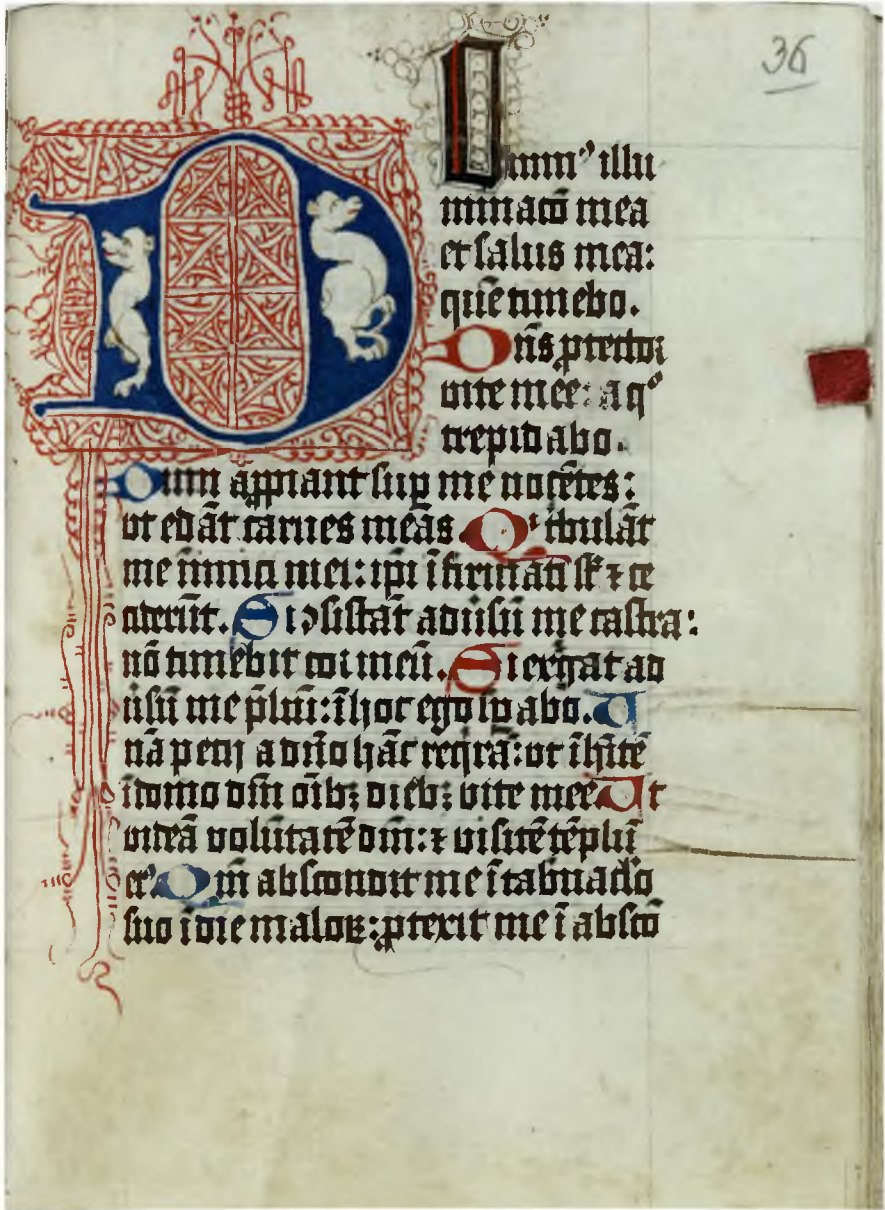 36
D Omin⁹ illu
minacō mea
et salus mea:
quē timebo.
Dn̄s ꝓtector
uite mee: a q°
trepidabo.
Dum āppiant sup me nocētes:
ut edāt carnes meas Qⁱ tribulāt
me inimici mei: ip̄i īfirmati sr̄ ⁊ ce
ciderūt. Si ꝯsistāt adūsū me castra:
nō timebit cor meū. Si exꝗat ad
ūsū me p̄liū: ī hoc ego sꝑabo. U
nā petij a dn̄o hāc reqirā: ut īhītē
ī domo dn̄i oīb; dieb; uite mee Ut
uideā volūtatē dn̄i: ⁊ visitē tēplū
ei⁹ Qm̄ abscondit me ī tabnac̄lo
suo ī die maloꝝ: ꝓtexit me ī abscō